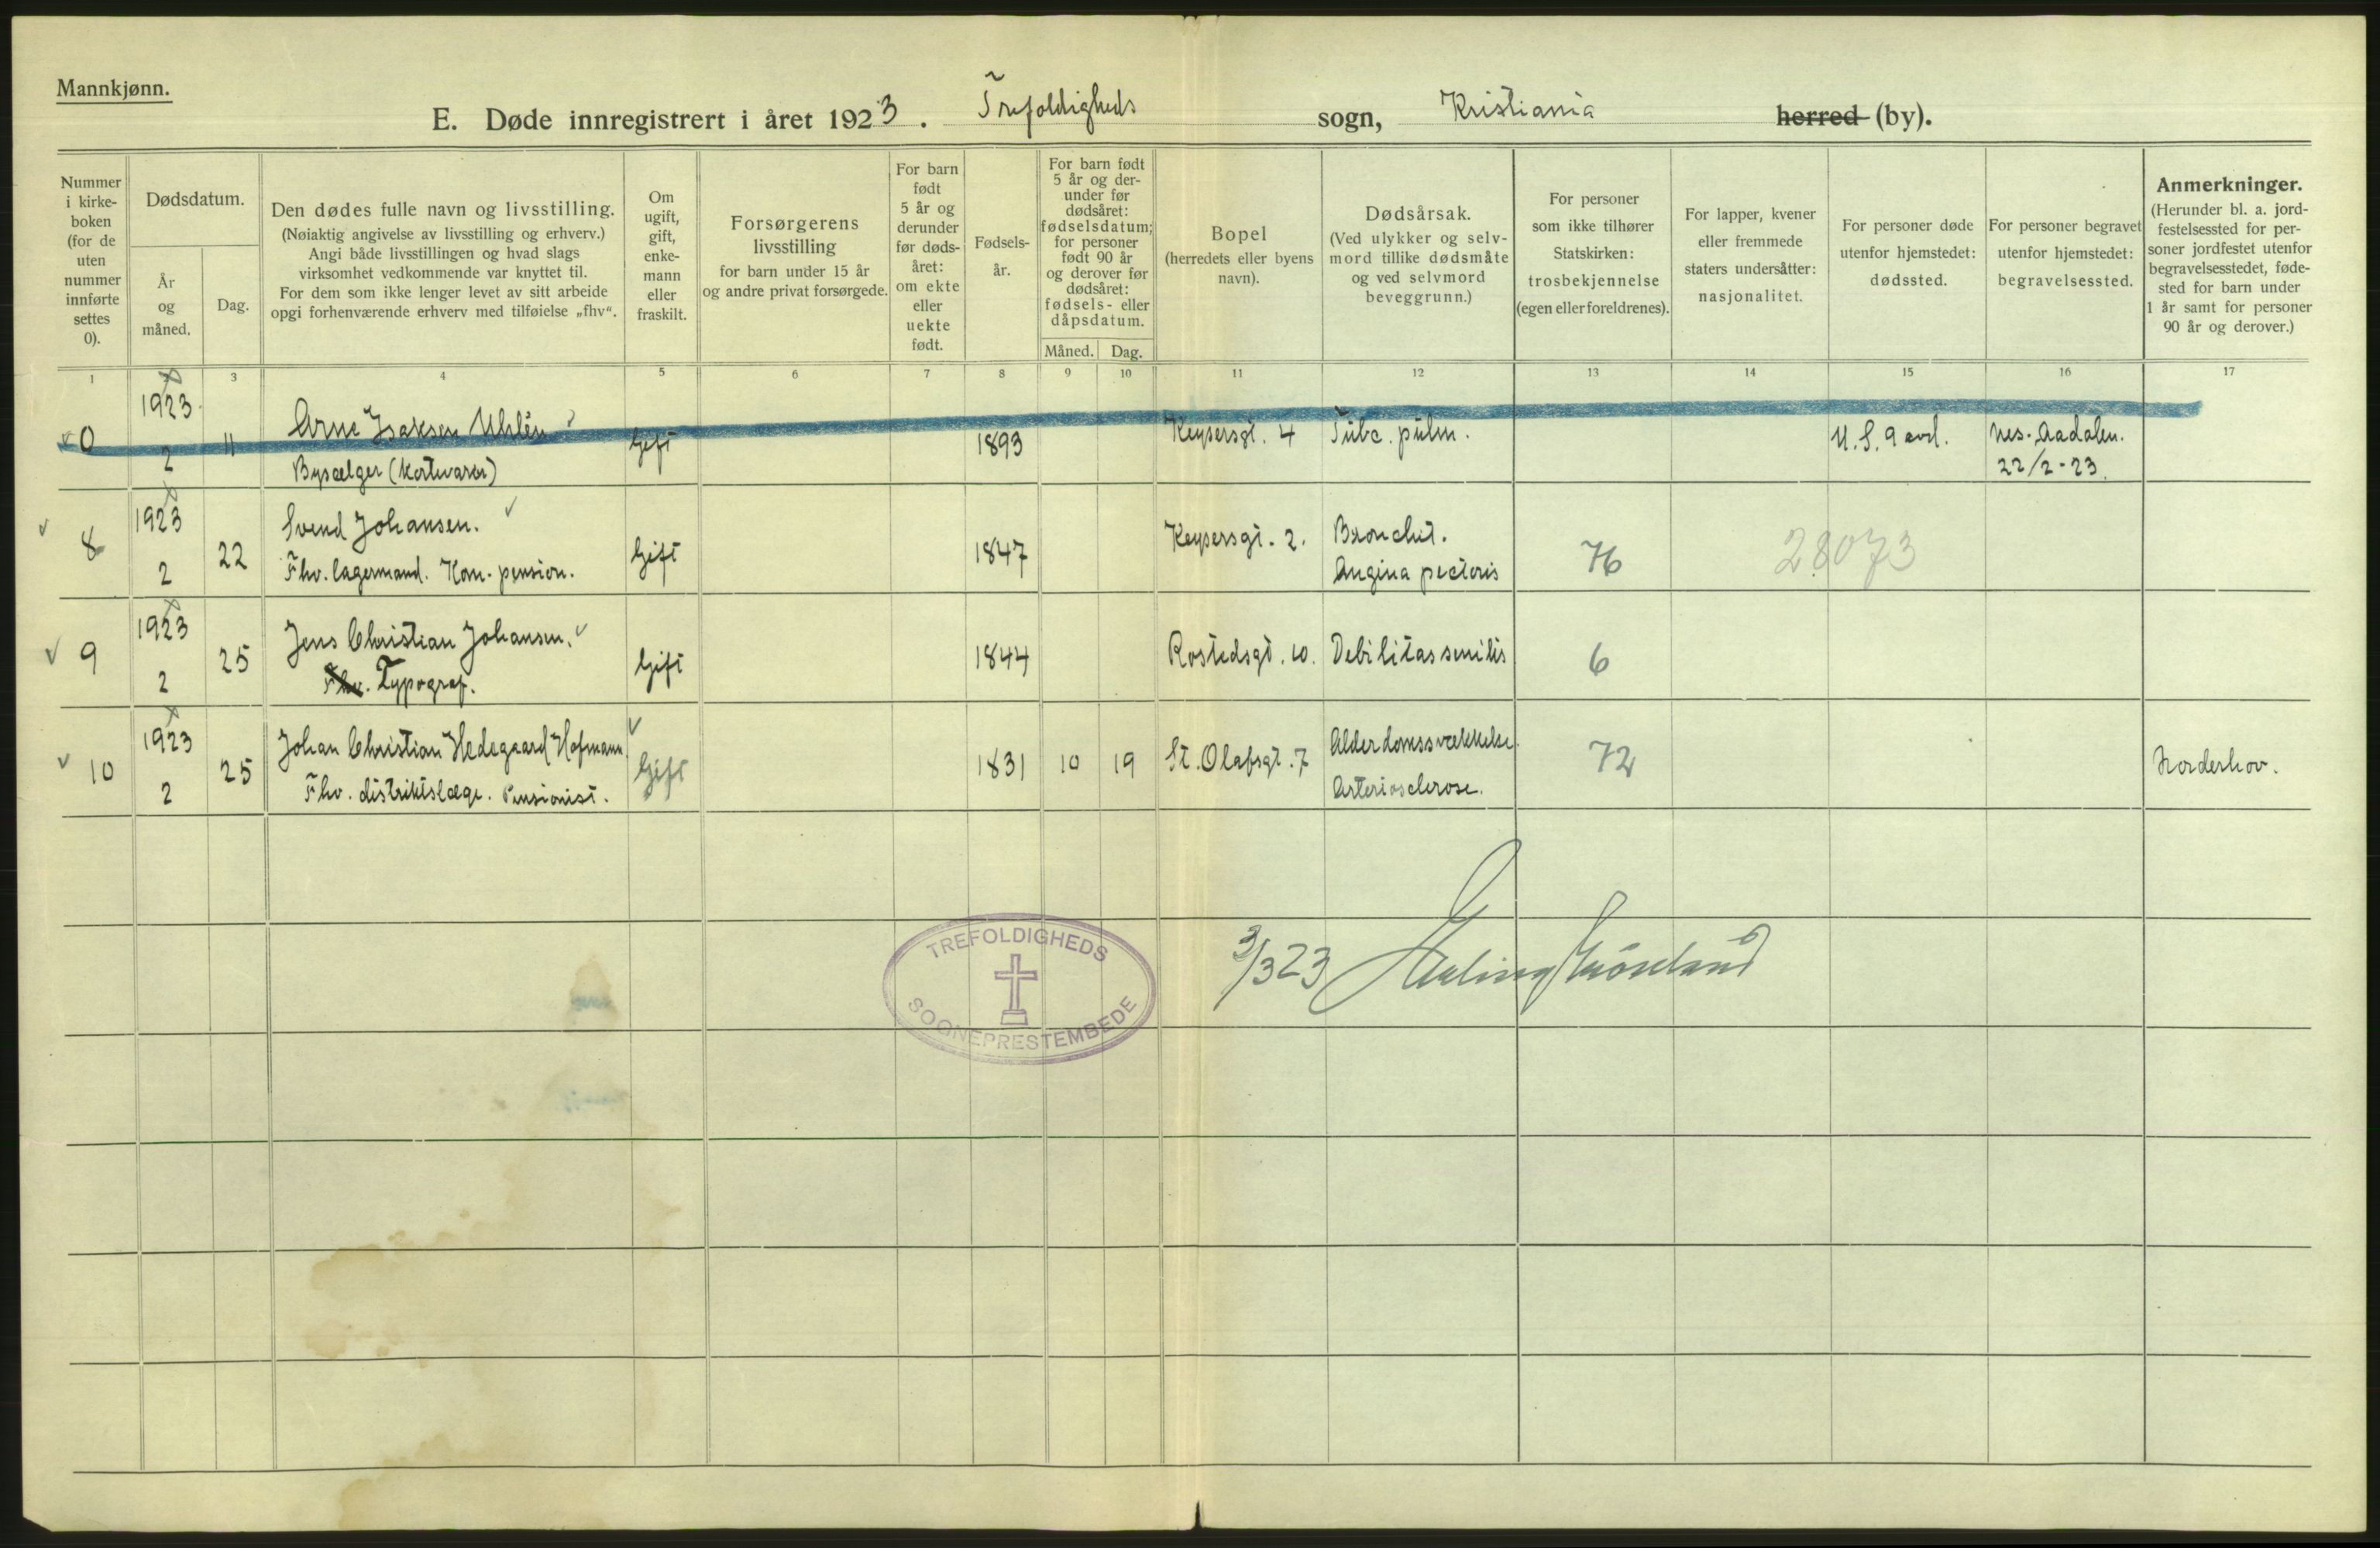 Mannkjønn.
E. Døde innregistrert i året 1923. Trefoldigheds sogn, Kristiania herred (by).
Nummer i kirke-boken (for de uten nummer innførte settes 0).
Dødsdatum.
År og måned.
Dag.
Den dødes fulle navn og livsstilling.
(Nøiaktig angivelse av livsstilling og erhverv.)
Angi både livsstillingen og hvad slags
virksomhet vedkommende var knyttet til.
For dem som ikke lenger levet av sitt arbeide
opgi forhenværende erhverv med tilføielse „fhv“.
Om ugift, gift, enke-mann eller fraskilt.
Forsørgerens
livsstilling
for barn under 15 år
og andre privat forsørgede.
For barn født 5 år og derunder før døds-året: om ekte eller uekte født.
Fødsels-år.
For barn født
5 år og der-
under før
dødsåret:
fødselsdatum;
for personer
født 90 år
og derover før
dødsåret:
fødsels- eller
dåpsdatum.
Måned. Dag.
Bopel
(herredets eller byens
navn).
Dødsårsak.
(Ved ulykker og selv-
mord tillike dødsmåte
og ved selvmord
beveggrunn.)
For personer
som ikke tilhører
Statskirken:
trosbekjennelse
(egen eller foreldrenes).
For lapper, kvener
eller fremmede
staters undersåtter:
nasjonalitet.
For personer døde
utenfor hjemstedet:
dødssted.
For personer begravet
utenfor hjemstedet:
begravelsessted.
Anmerkninger.
(Herunder bl. a. jord-
festelsessted for per-
soner jordfestet utenfor
begravelsesstedet, føde-
sted for barn under
1 år samt for personer
90 år og derover.)
1 3 4 5 6 7 8 9 10 11 12 13 14 15 16 17
0 1923 2 11 Arne Isaksen Uhlén Gift 1893 Keysersgt. 4 Tubc. pulm. U.S. 9 avd. Nes. Aadalen.
Bysælger (kortevarer) 22/2-23.
8 1923 2 22 Svend Johansen. Gift 1847 Keysersgt. 2. Bronchit. 76 28073
Fhv. lagermand. Kom. pension. Angina pectoris
9 1923 2 25 Jens Christian Johansen. Gift 1844 Rostedsgt. 10. Debilitas senilis 6
Fhv. Typograf.
10 1923 2 25 Johan Christian Hedegaard Hofmann Gift 1831 10 19 St. Olafsgt. 7 Alderdomssvækkelse 72 Norderhov.
Fhv. distriktslæge. Pensionist. Arteriosclerose.
TREFOLDIGHEDS
SOGNEPRESTEMBEDE
3/3 23 Erling Grönland